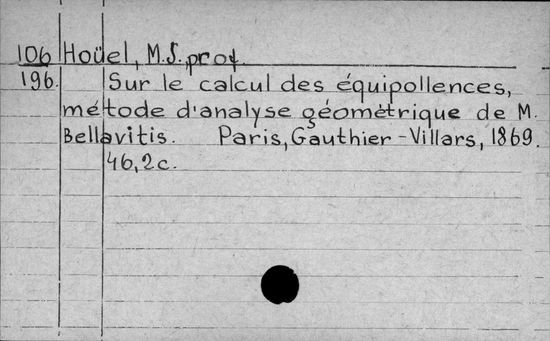 106 Hoüel, M.S. prof.
196. Sur le calcul des équipollences,
métode d'analyse géométrique de M.
Bellavitis. Paris, Gauthier-Villars, 1869.
46,2c.